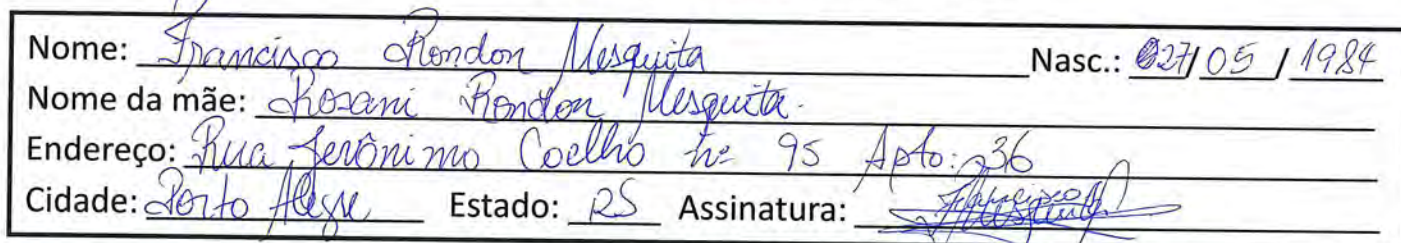 Nome: Francisco Rondon Mesquita Nasc.: 27/05/1984
Nome da mãe: Rosani Rondon Mesquita.
Endereço: Rua Jerônimo Coelho nº 95 Apto: 36
Cidade: Porto Alegre Estado: RS Assinatura: Francisco R Mesquita